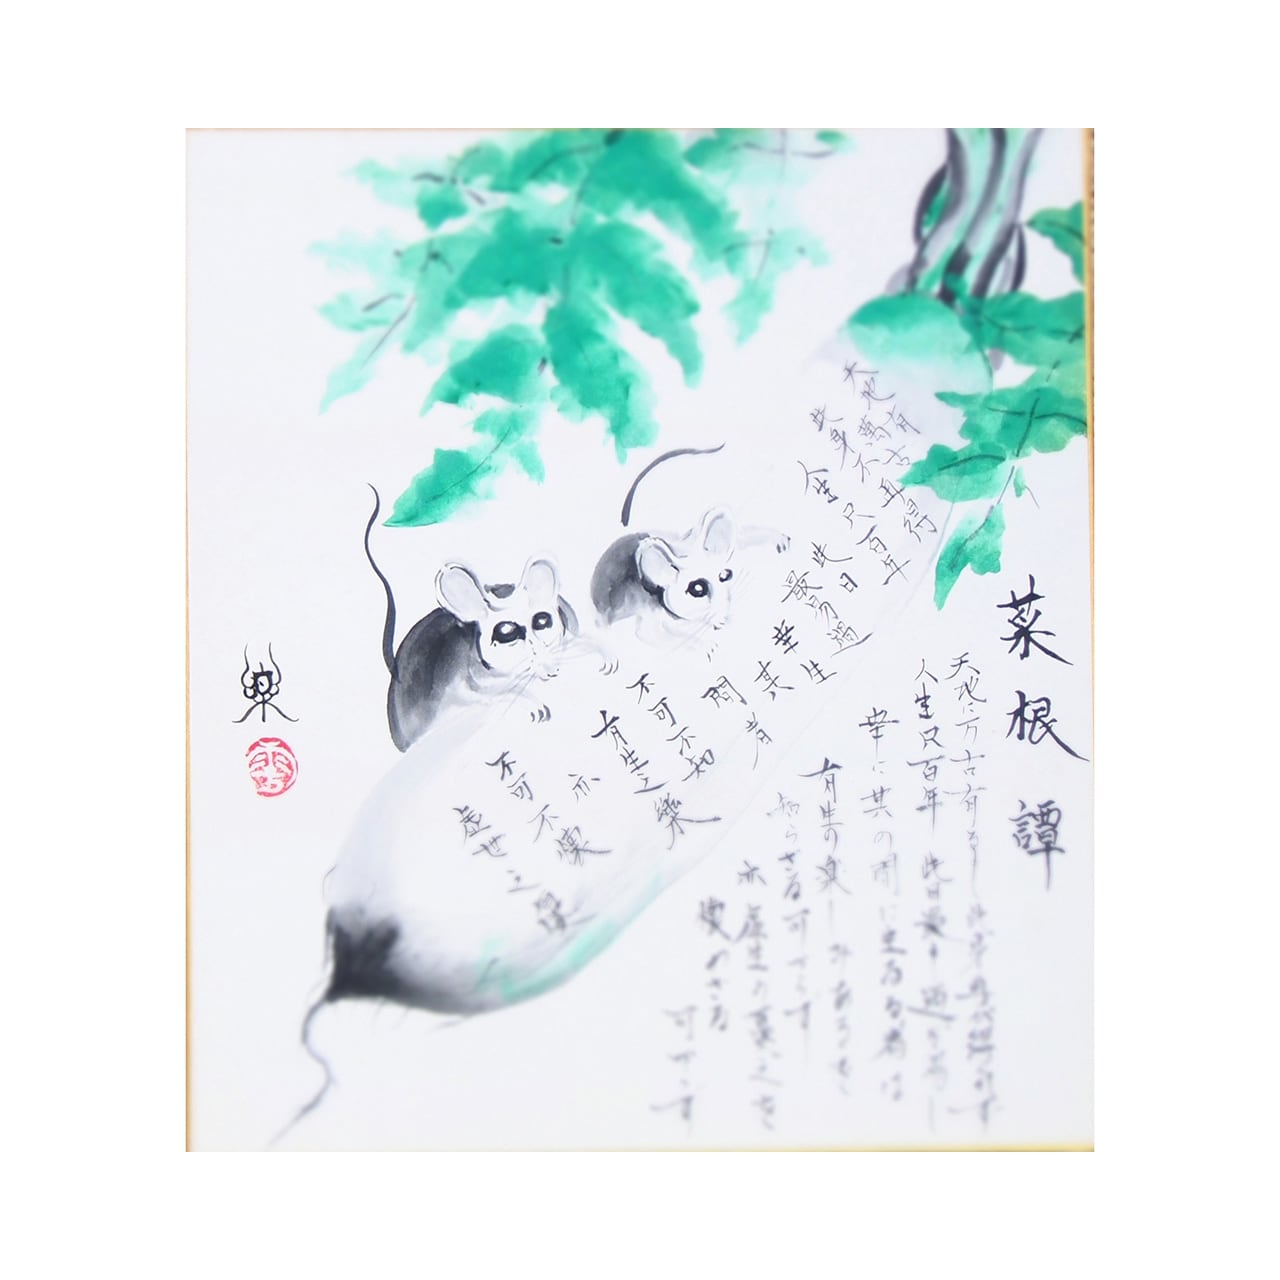 菜根譚
天地有萬古
此身不再得
人生只百年
此日最易過
幸生其間者
不可不知
有生之樂
亦不可不懐
虚世之
天地に万古有るも此身
人生只百年 此日最も過ぎ易し
幸に其の間に生るる者は
有生の楽しみあるを
知らざる可からず
亦虚生の憂
懐かざる
可からず
樂